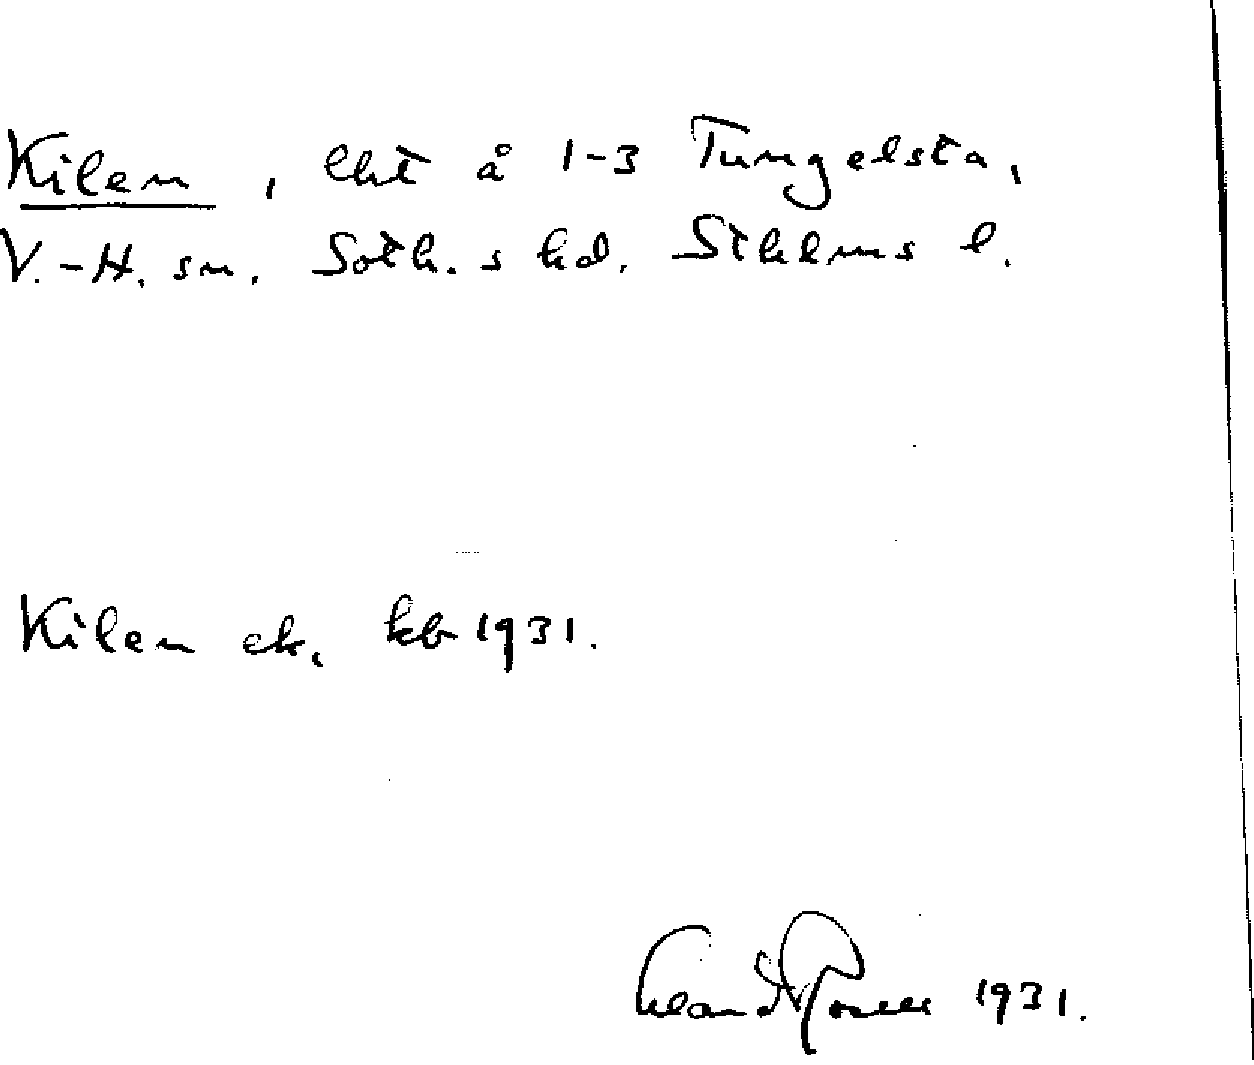 Kilen, lht å 1-3 Tungelsta,
V.-H. sn. Soth.s hd. Sthlms l.
Kilen ek. kb 1931.
1931.